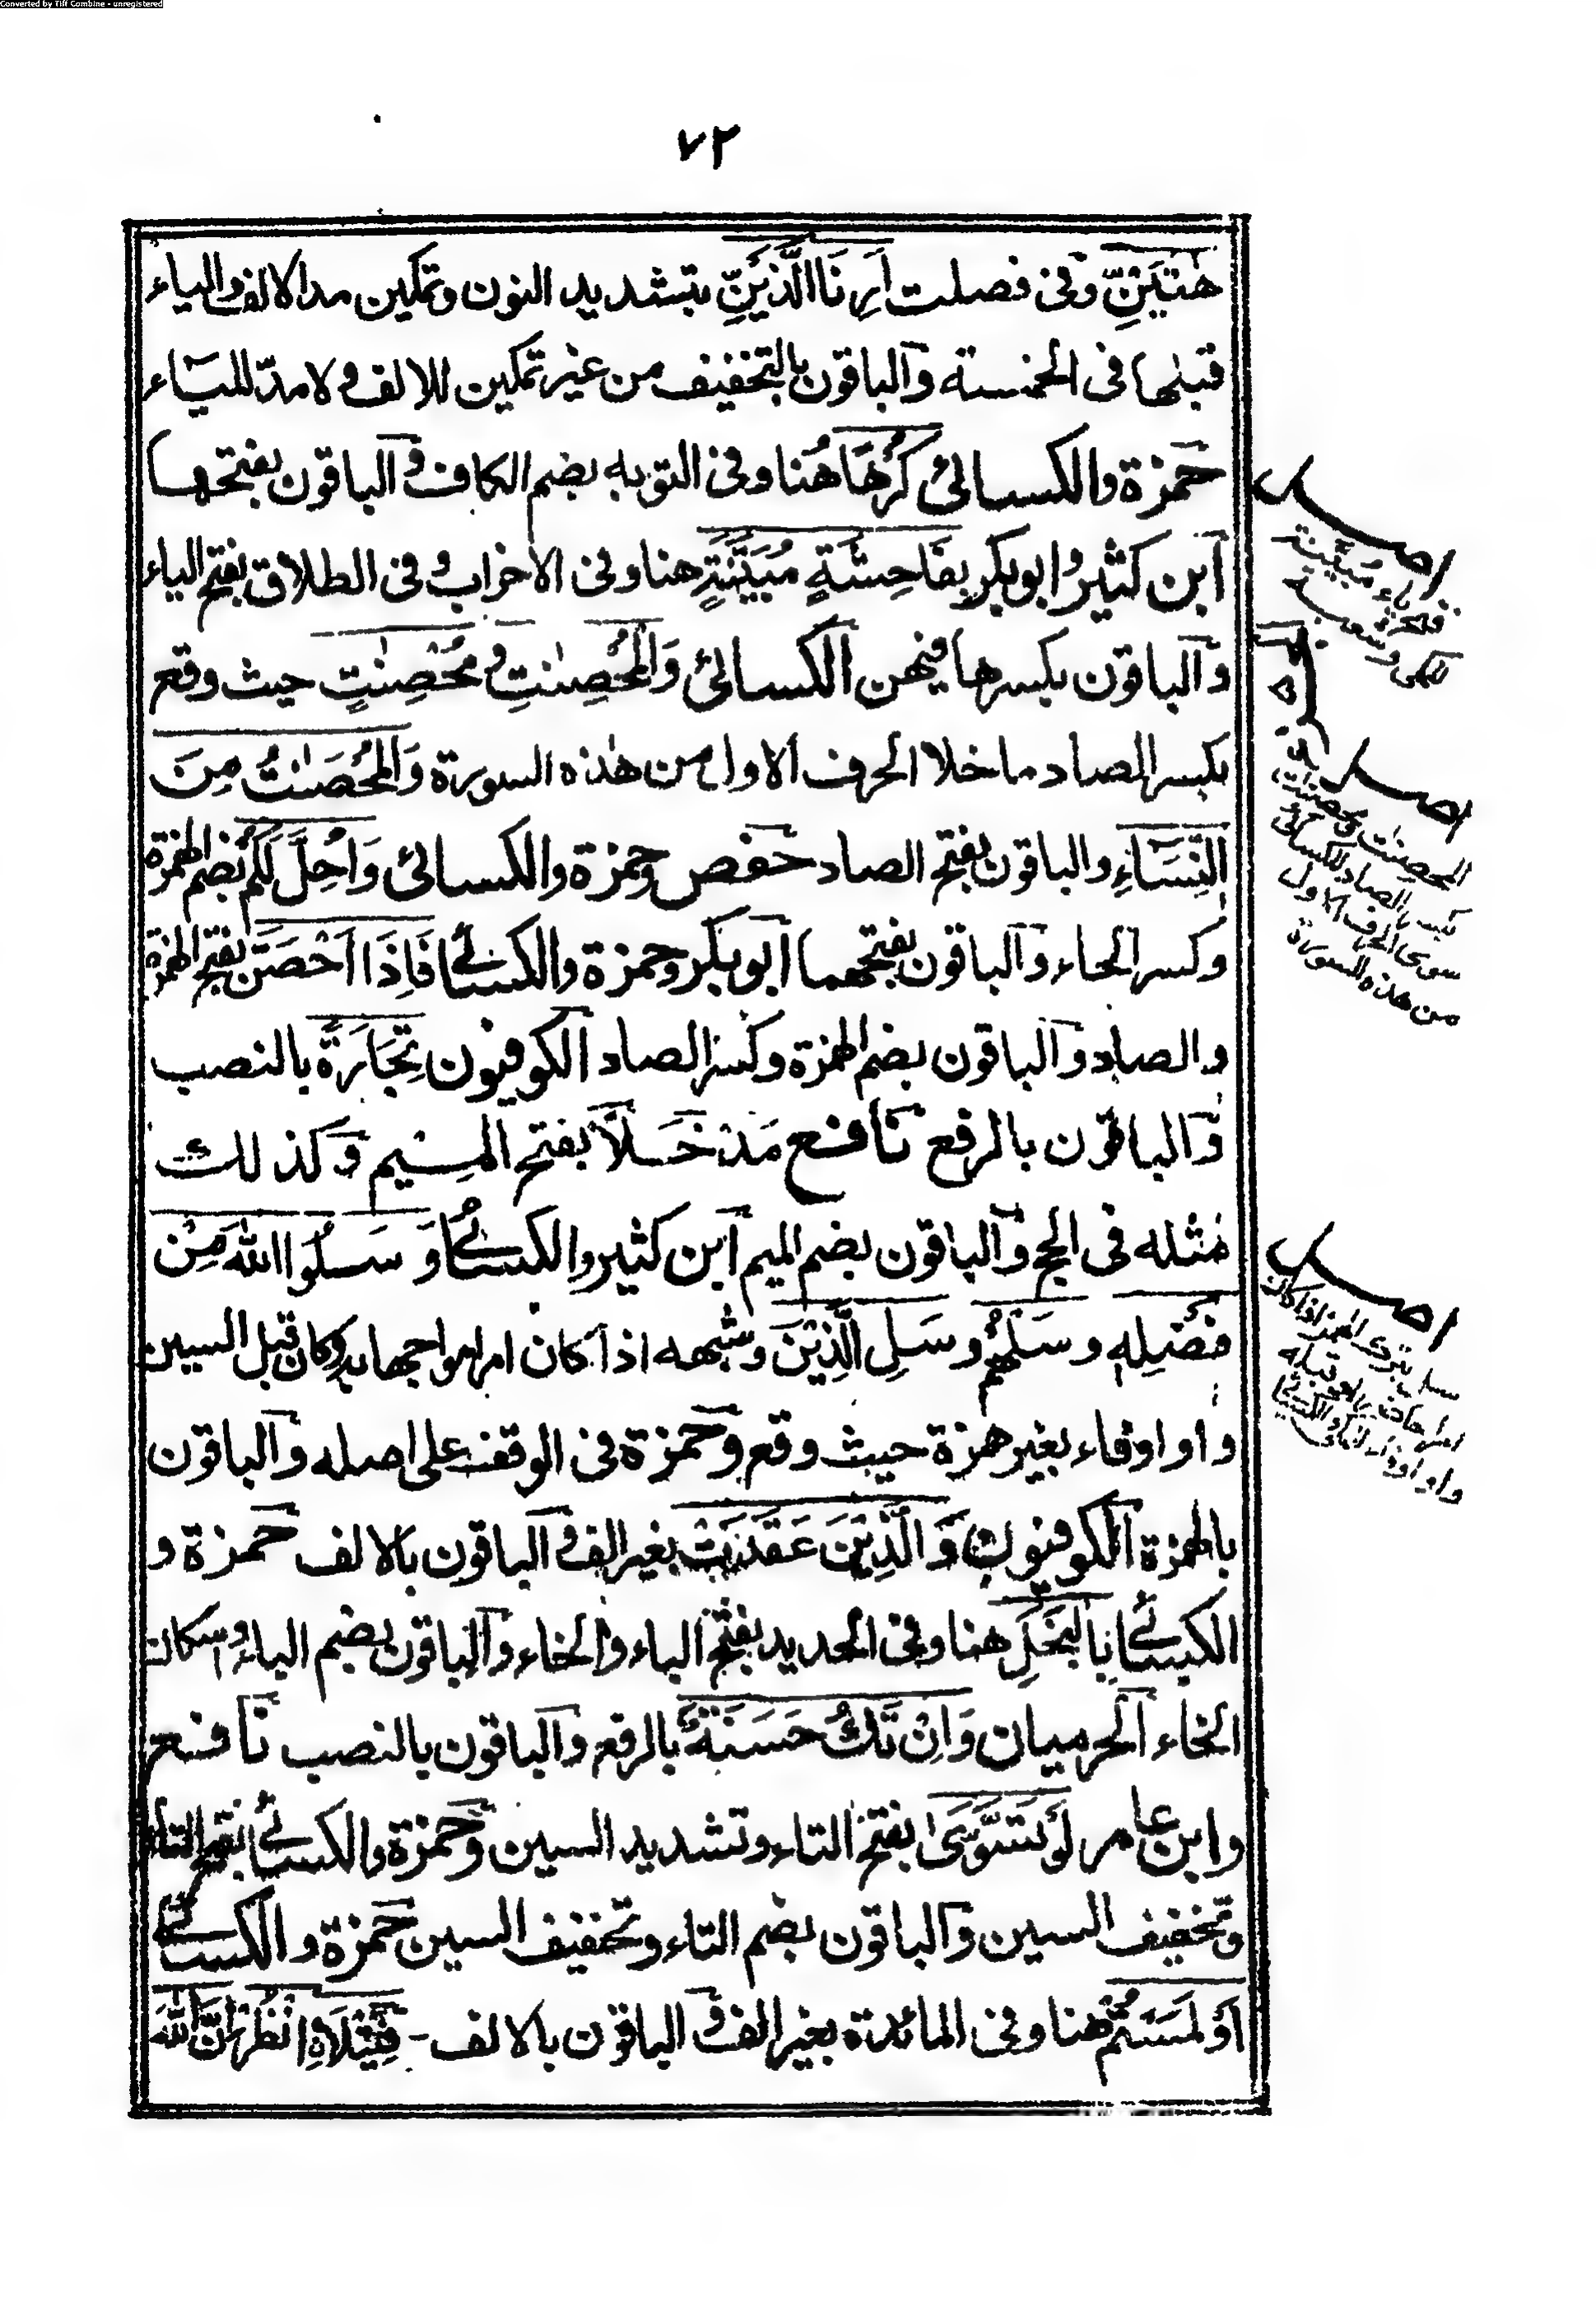 Converted by Tiff Combine - unregistered
٧٢
هٰتَيْنِّ وفى فصلت اَرِنَا الَّذَيْنِّ بتشديد النون وتمكين مد الالف والياء
قبلها فى الخمسة والباقون بالتخفيف من غير تمكين للالف ولا مدّ للياء
حمزة والكسائى كُرْهًا هُنا وفى التوبه بضم الكاف والباقون بفتحها
ابن كثير وابو بكر بِفَاحِشَةٍ مُبَيَّنَةٍ هنا وفى الاحزاب وفى الطلاق بفتح الياء
والباقون بكسرها فيهن الكسائى وَالْمُحْصِنٰتِ و مُحْصِنٰتٍ حيث وقع
بكسر الصاد ما خلا الحرف الاول من هٰذه السورة وَالْمُحْصَنٰتُ مِنَ
النِّسَاءِ والباقون بفتح الصاد حفص وحمزة والكسائى وَاُحِلَّ لَكُمْ بضم الهمزة
وكسر الحاء والباقون بفتحهما ابو بكر وحمزة والكسائى فَاِذَا اَحْصَنَّ بفتح الهمزة
والصاد والباقون بضم الهمزة وكسر الصاد الكوفيون تِجَارَةً بالنصب
والباقون بالرفع نافع مَدْخَلًا بفتح الميم وكذلك
مثله فى الحج والباقون بضم الميم ابن كثير والكسائى وَ سَلُوا اللّٰهَ مِنْ
فَضْلِهٖ و سَلْهُمْ و سَلِ الَّذِيْنَ وشبهه اذا كان امرا مواجها به وكان قبل السين
واو او فاء بغير همزة حيث وقع وحمزة فى الوقف على اصله والباقون
بالهمزة الكوفيون وَالَّذِيْنَ عَقَدَتْ بغير الف والباقون بالالف حمزة و
الكسائى بِالْبَخَلِ هنا وفى الحديد بفتح الباء والخاء والباقون بضم الباء واسكان
الخاء الحرميان وَاِنْ تَكُ حَسَنَةٌ بالرفع والباقون بالنصب نافع
وابن عامر لَوْ تَسَّوّٰى بفتح التاء وتشديد السين وحمزة والكسائى بفتح التاء
وتخفيف السين والباقون بضم التاء وتخفيف السين حمزة والكسائى
اَوْ لَمَسْتُمْ هنا وفى المائدة بغير الف والباقون بالالف - فَتِيْلًا انْظُرْ اِنَّ اللّٰهَ
اصل
ياء مُبَيِّنة
اصل
المحصنٰت ومحصنٰت
بكسر الصاد للكسائى
سوى الحرف الاول
من هذه السورة
اصل